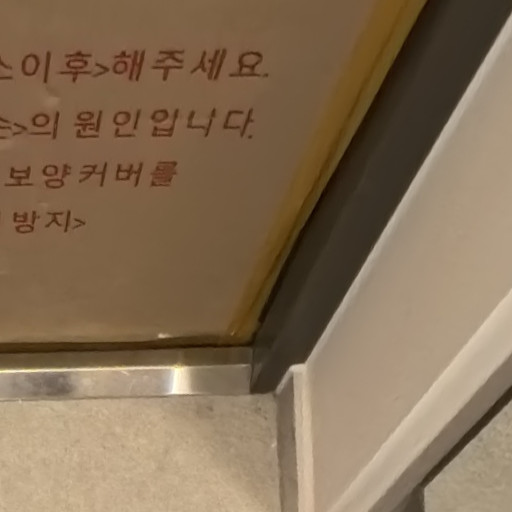 이후>해주세요.
>의 원인입니다.
보양커버를
방지>